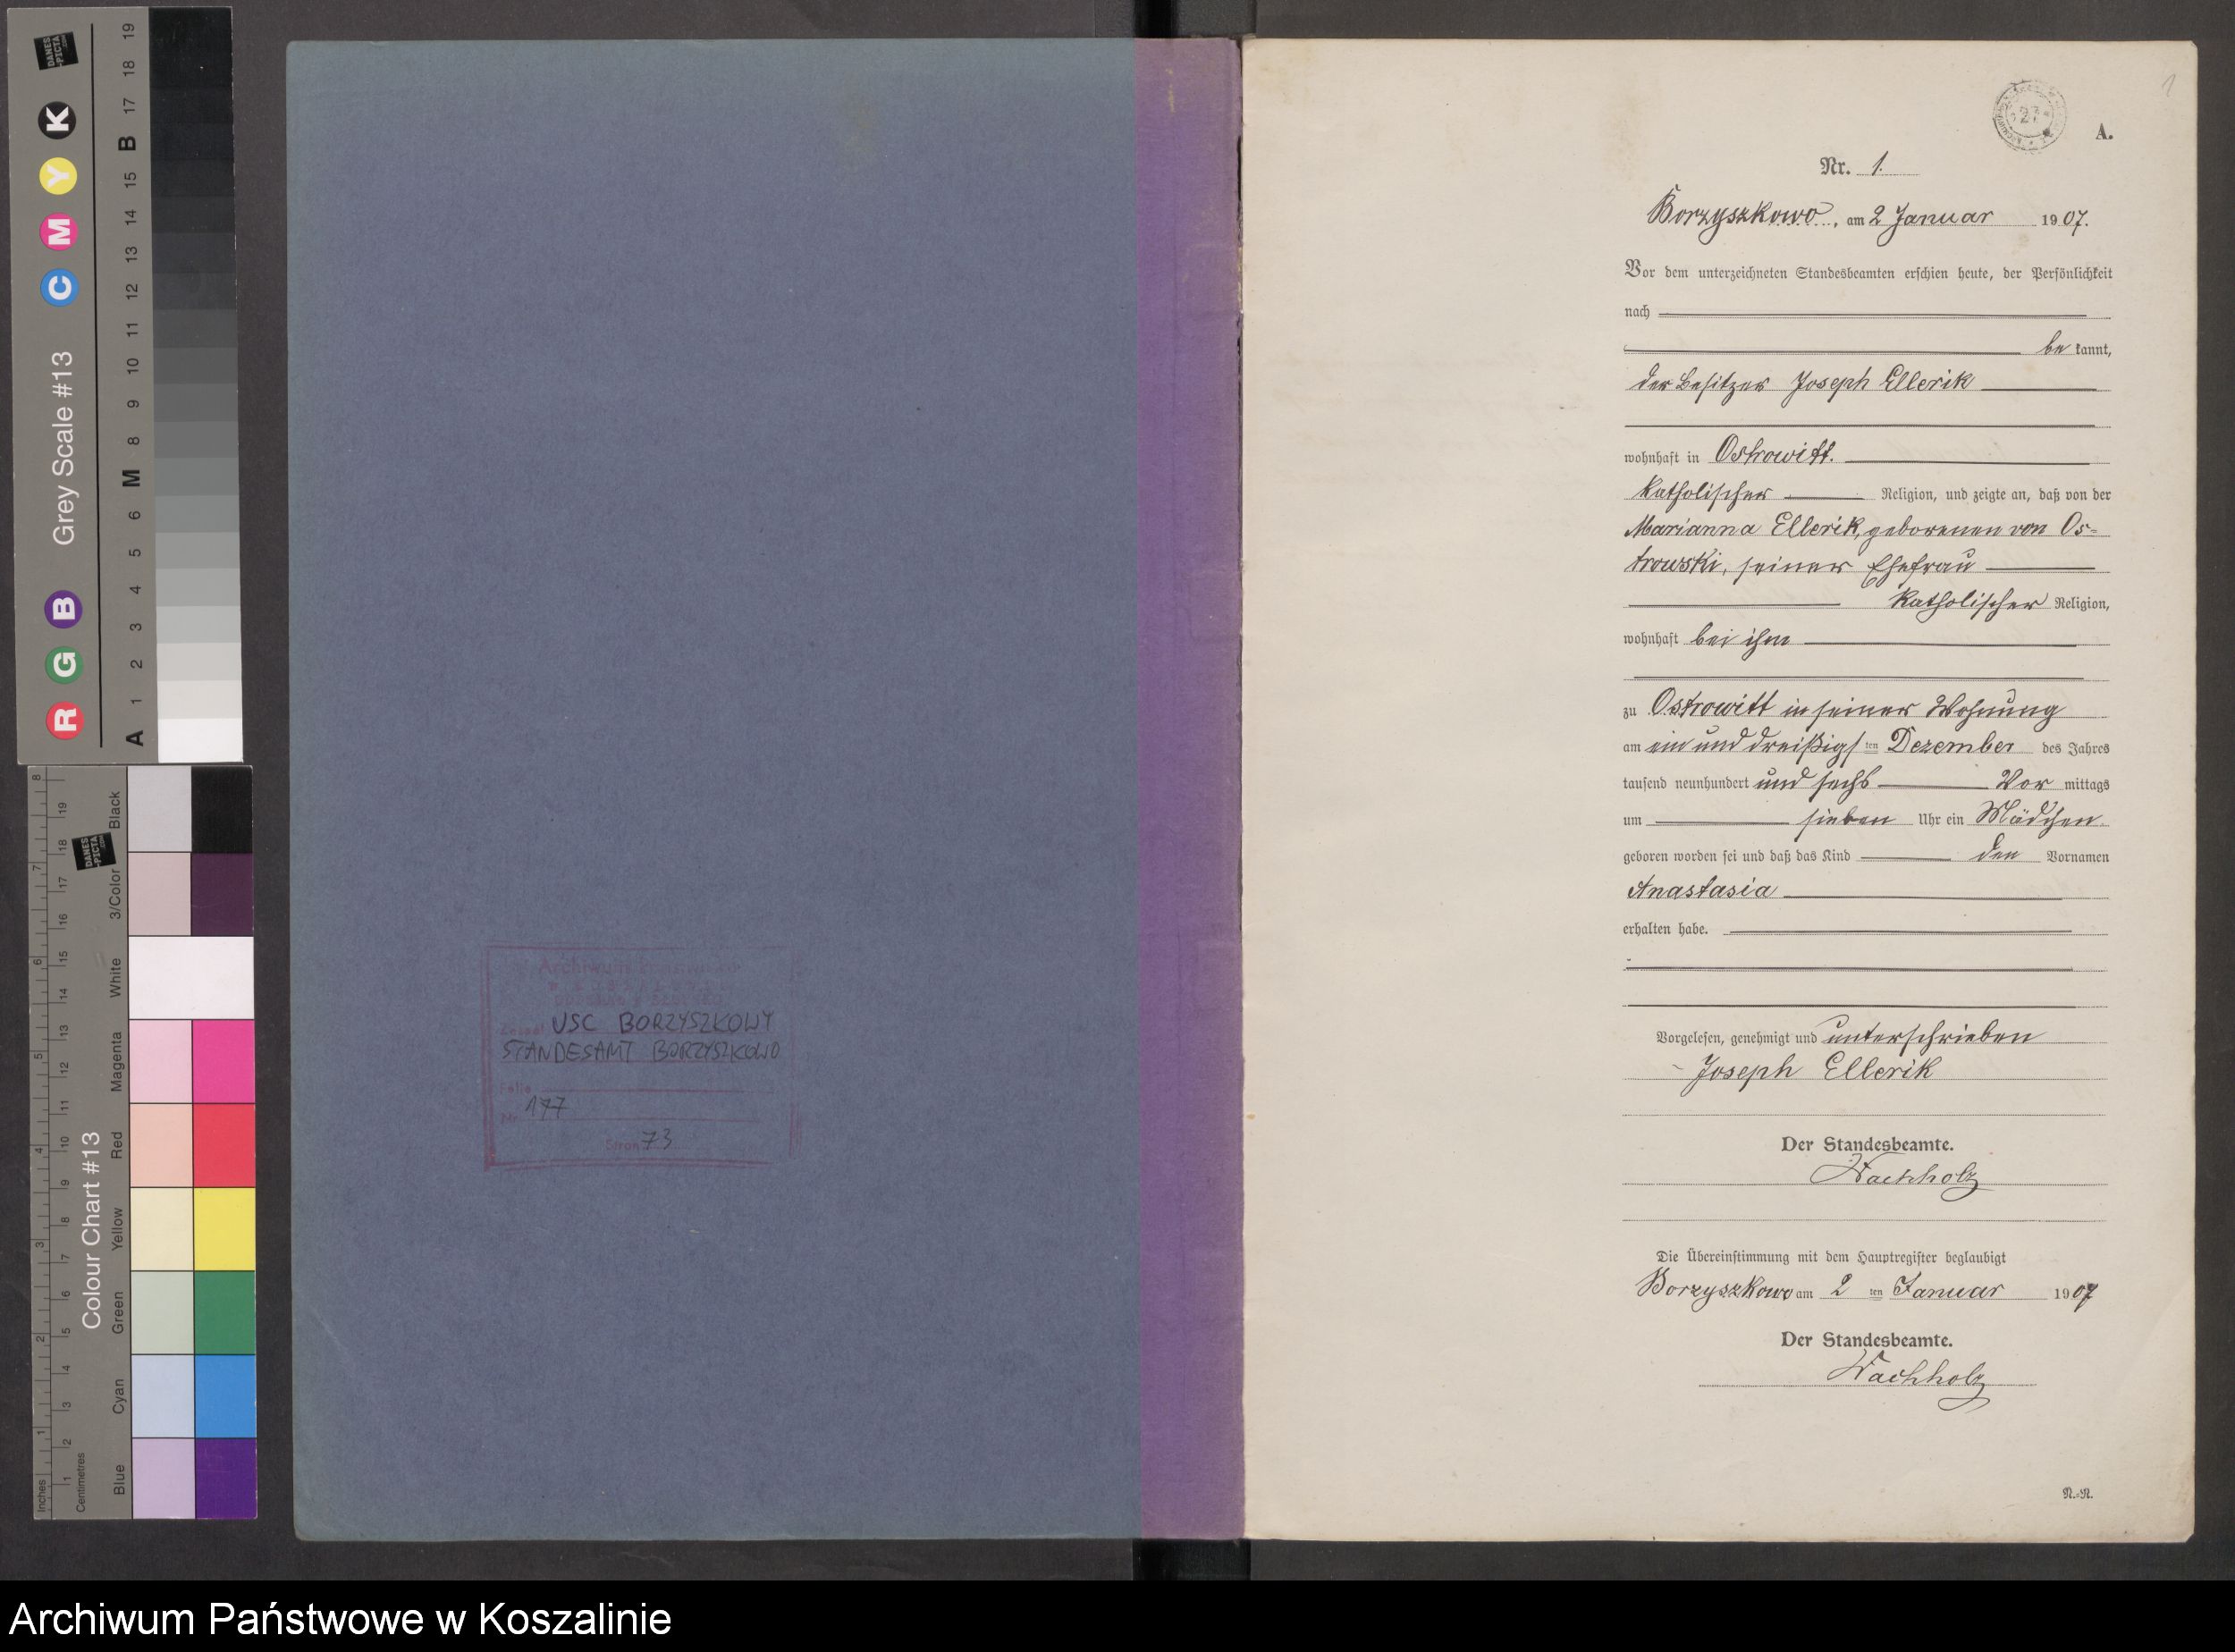 DANES
-PICTA
.COM
Grey Scale #13
R G B C M Y K
A 1 2 3 4 5 6 M 8 9 10 11 12 13 14 15 B 17 18 19
DANES
-PICTA
.COM
Colour Chart #13
Blue Cyan Green Yellow Red Magenta White 3/Color Black
Inches 1 2 3 4 5 6 7 8
Centimetres 1 2 3 4 5 6 7 8 9 10 11 12 13 14 15 16 17 18 19
Archiwum
Zespół USC BORZYSZKOWY
STANDESAMT BORZYSZKOWO
Nr 177
Stron 73
1
27
A.
Nr. 1.
Borzyszkowo, am 2 Januar 1907.
Vor dem unterzeichneten Standesbeamten erschien heute, der Persönlichkeit
nach
be kannt,
der Besitzer Joseph Ellerik
wohnhaft in Ostrowitt.
katholischer Religion, und zeigte an, daß von der
Marianna Ellerik, geborenen von Os=
trowski, seiner Ehefrau
katholischer Religion,
wohnhaft bei ihm
zu Ostrowitt in seiner Wohnung
am ein und dreißigsten Dezember des Jahres
tausend neunhundert und sechs Vor mittags
um sieben Uhr ein Mädchen
geboren worden sei und daß das Kind den Vornamen
Anastasia
erhalten habe.
Vorgelesen, genehmigt und unterschrieben
Joseph Ellerik
Der Standesbeamte.
Wachholz
Die Übereinstimmung mit dem Hauptregister beglaubigt
Borzyszkowo am 2 ten Januar 1907
Der Standesbeamte.
Wachholz
N.=N.
Archiwum Państwowe w Koszalinie